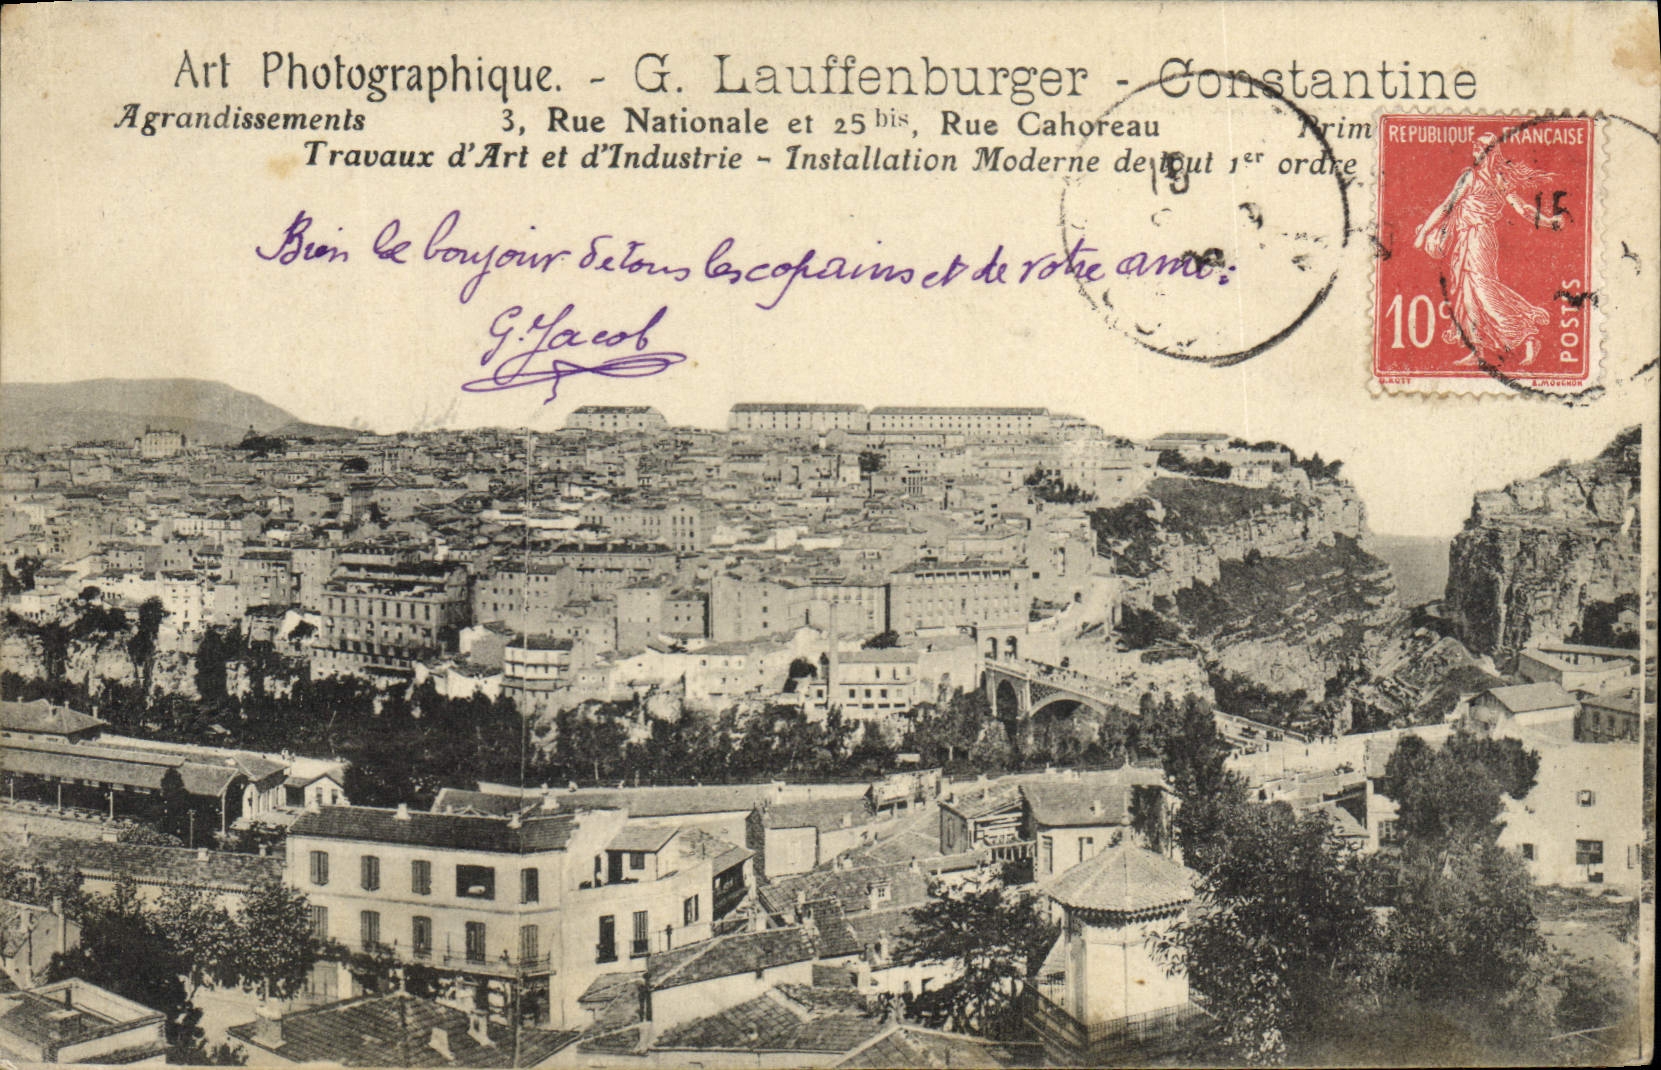 Art Photographique. - G. Lauffenburger - Constantine
Agrandissements 3, Rue Nationale et 25 bis, Rue Cahoreau Prim
Travaux d'Art et d'Industrie - Installation Moderne de tout 1er ordre
REPUBLIQUE FRANÇAISE
10c
POSTES
O. ROTY
E. MOUCHON
15
15
Bien le bonjour de tous les copains et de votre ami:
G. Jacob